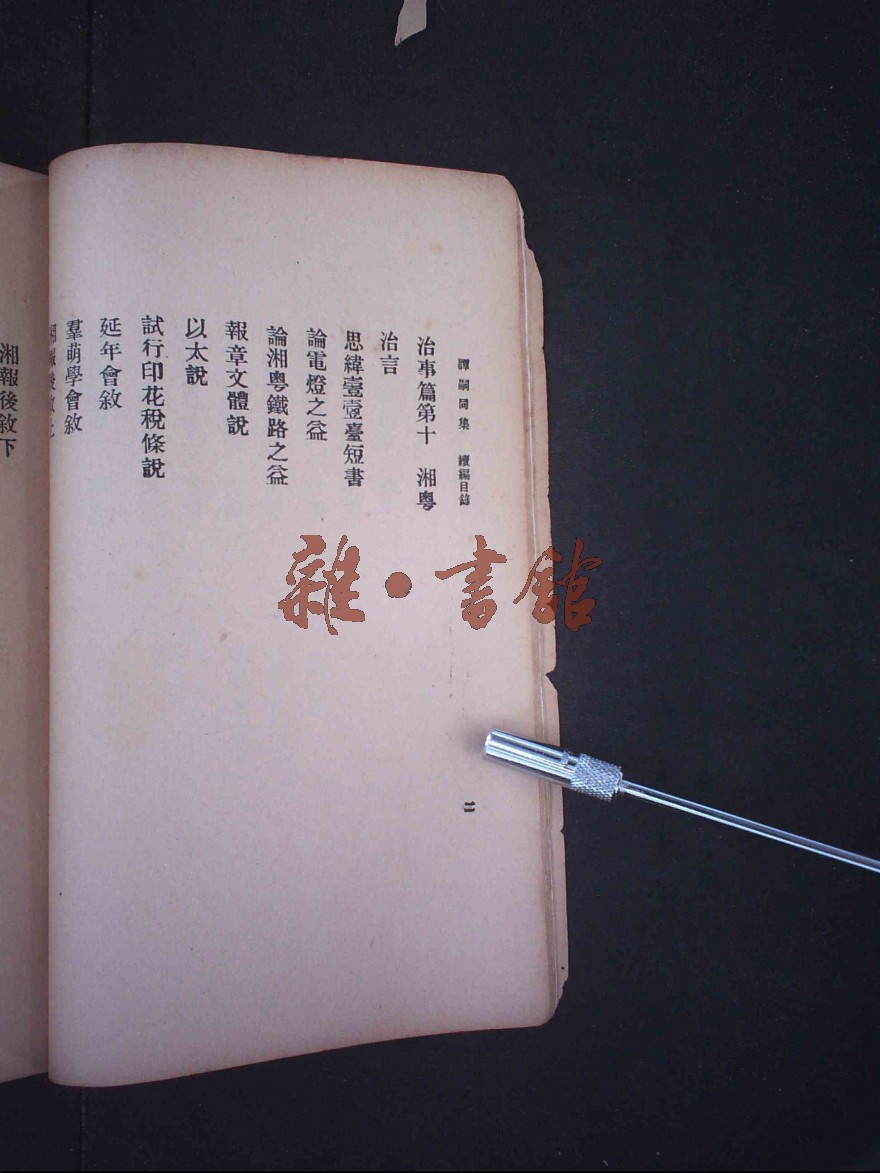 譚嗣同集 續編目錄
治事篇第十 湘粵
治言
思緯壹壹臺短書
論電燈之益
論湘粵鐵路之益
報章文體說
以太說
試行印花稅條說
延年會敘
羣萌學會敘
湘報後敘上
湘報後敘下
二
雜·書館